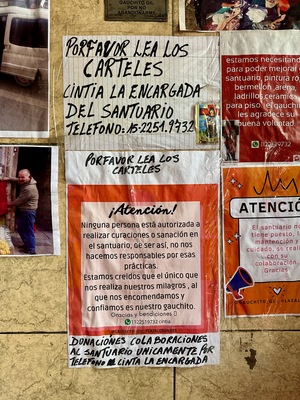 GAUCHITO GIL
POR NO
ABANDONARME
PORFAVOR LEA LOS
CARTELES
CINTIA LA ENCARGADA
DEL SANTUARIO
TELEFONO: 15-2251.9732
estamos necesitando
para poder mejorar el
santuario, pintura ro
bermellon, arena,
ladrillos, ceramica
para piso. el gauchito
les agradece su
buena voluntad.
1122519732
PORFAVOR LEA LOS
CARTELES
¡Atención!
Ninguna persona está autorizada a
realizar curaciones o sanación en
el santuario, de ser así, no nos
hacemos responsables por esas
prácticas.
Estamos creidos que el único que
nos realiza nuestros milagros, al
que nos encomendamos y
confiamos es nuestro gauchito.
Gracias y bendiciones
1122519732 cintia
ATENCIÓ
El santuario no
tiene puesto,
mantención y
cuidado, se realiza
con su
colaboración.
Gracias
DONACIONES COLABORACIONES
AL SANTUARIO UNICAMENTE POR
TELEFONO A CINTIA LA ENCARGADA